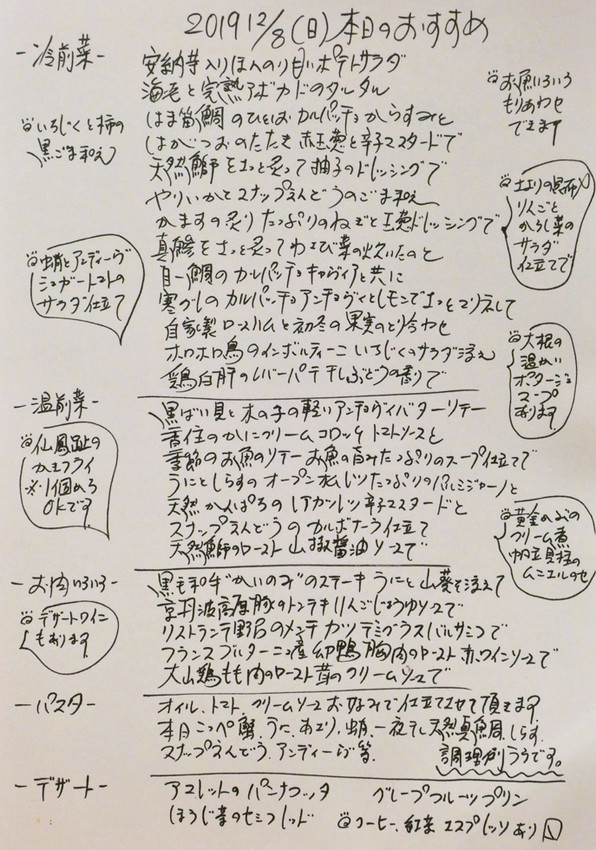 2019 12/8 (日) 本日のおすすめ
-冷前菜-
安納芋入りほんのり甘いポテトサラダ
海老と完熟アボカドのタルタル
はま笛鯛のひとしおカルパッチョからすみと
はがつおのたたき 赤玉葱と辛子マスタードで
天然鰤をさっと炙って柚子のドレッシングで
やりいかとスナップえんどうのごま和え
かますの炙り たっぷりのねぎと玉葱ドレッシングで
真鯵をさっと炙ってわさび菜の炊いたのと
目一鯛のカルパッチョキャヴィアと共に
寒ぶりのカルパッチョアンチョヴィとレモンでさっとマリネして
自家製ロースハムと初冬の果実のとり合わせ
ホロホロ鳥のインボルティーニ いちじくのサラダ添え
鶏白肝のレバーパテ 干しぶどうの香りで
いちじくと柿の
黒ごま和え
蛸とアンディーヴ
シュガートマトの
サラダ仕立て
お魚いろいろ
もりあわせ
できます
りんごと
からし菜の
サラダ
仕立てで
大根の
温かい
ポタージュ
スープ
あります
-温前菜-
黒ばい貝と木の子の軽いアンチョヴィバターソテー
香住のかにクリームコロッケ トマトソースと
季節のお魚のソテー お魚の旨みたっぷりのスープ仕立てで
うにとしらすのオープンオムレツ たっぷりのパルミジャーノと
天然かんぱちのレアカツレツ 辛子マスタードと
スナップえんどうのカルボナーラ仕立て
天然鰤のロースト 山椒醤油ソースで
仙鳳趾の
かきフライ
※1個から
OKです
クリーム煮
帆立貝柱の
ムニエルのせ
-お肉いろいろ-
黒毛和牛"かいのみ"のステーキ うにと山葵を添えて
京丹波高原豚のトンテキ りんごじょうゆソースで
リストランテ野呂のメンチカツ デミグラスバルサミコで
フランスブルターニュ産 幼鴨胸肉のロースト 赤ワインソースで
大山鶏もも肉のロースト 茸のクリームソースで
デザートワイン
もあります
-パスタ-
オイル、トマト、クリームソース お好みで仕立てさせて頂きます
本日 こっぺ蟹、うに、あさり、蛸、一夜干し天然真鯛、しらす、
スナップえんどう、アンディーヴ等
調理別ララです。
-デザート-
アマレットのパンナコッタ
グレープフルーツプリン
ほうじ茶のセミフレッド
コーヒー、紅茶 エスプレッソあり